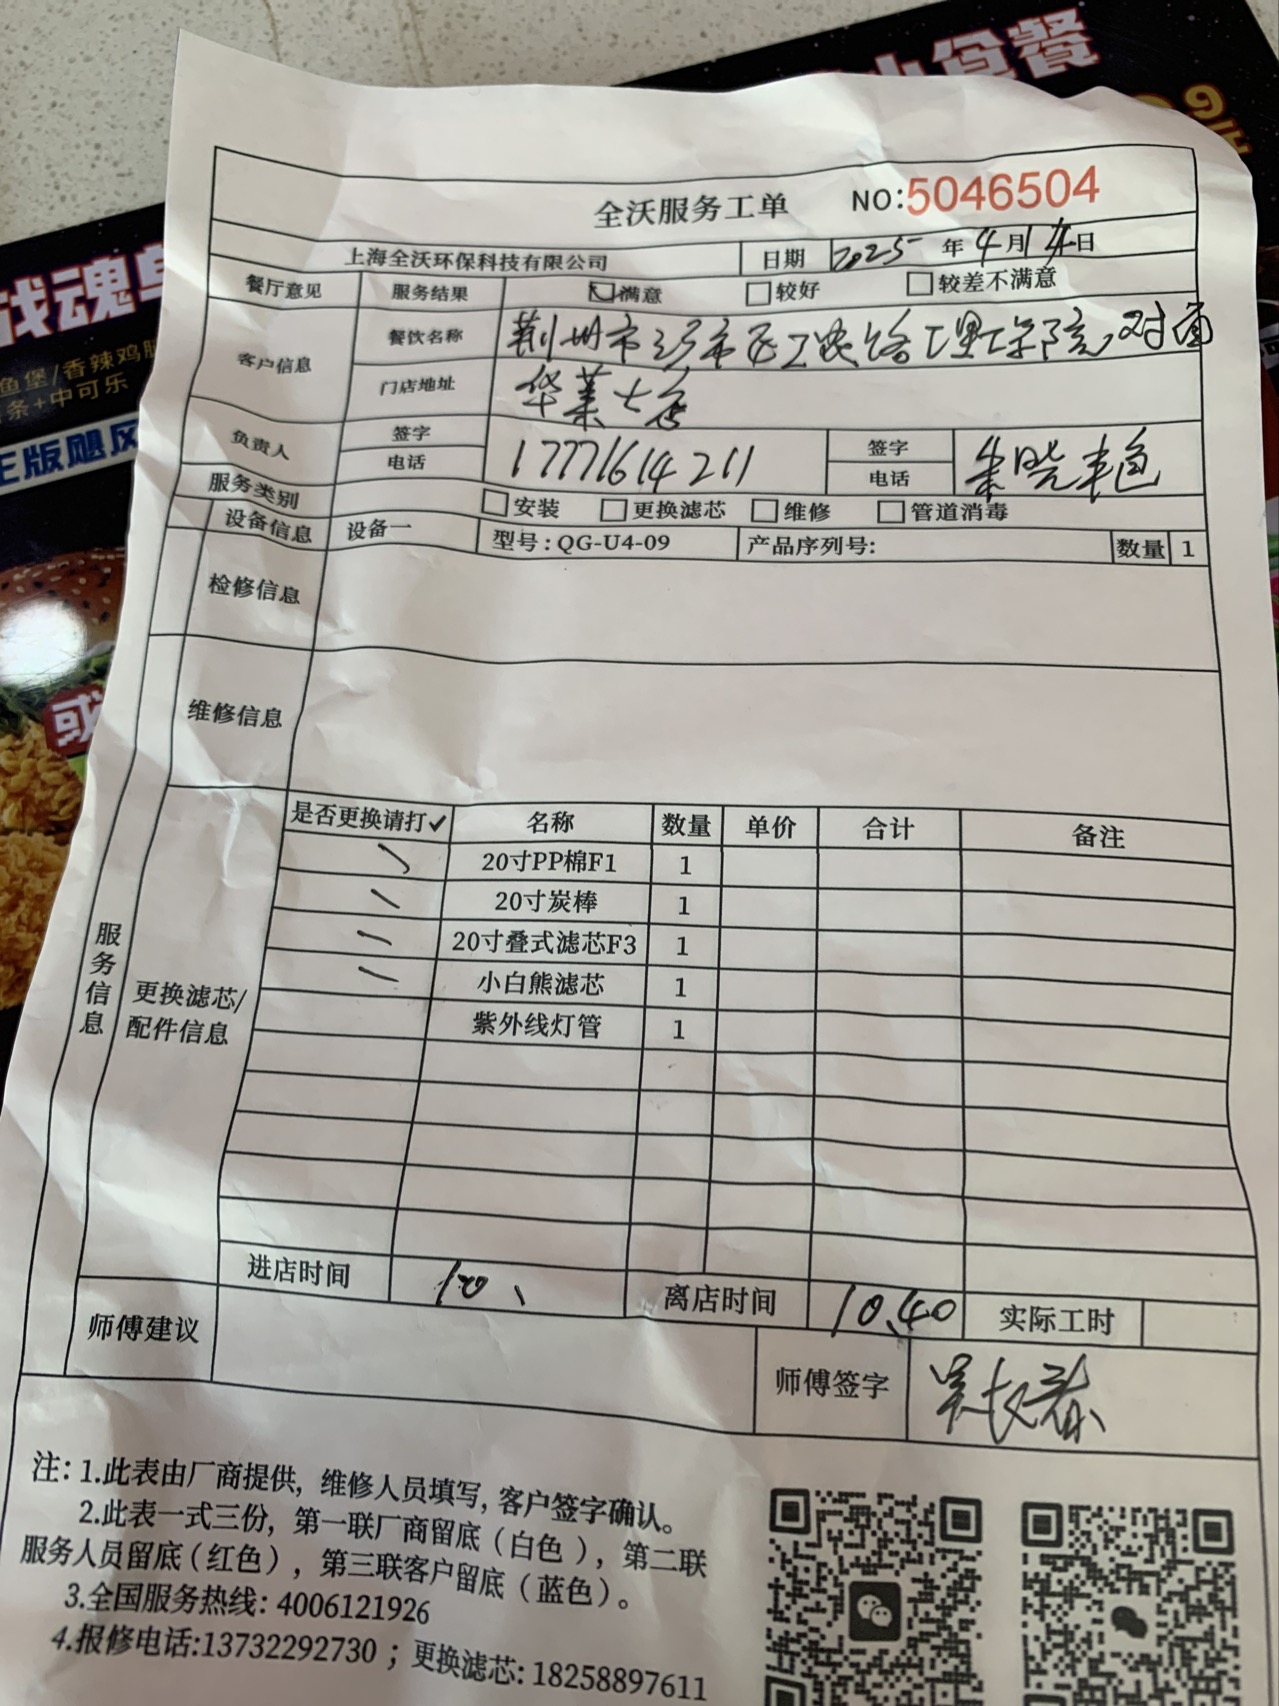 小食餐
9
战魂
鱼堡/香辣鸡腿
条+中可乐
王版飓风
或
全沃服务工单 NO:5046504
上海全沃环保科技有限公司 日期 2025年4月 日
餐厅意见 服务结果 满意 较好 较差不满意
客户信息 餐饮名称 荆州市沙市区工农路理工学院对面
门店地址 华莱士店
负责人 签字 电话 17771614211 签字 电话 朱晓艳
服务类别 安装 更换滤芯 维修 管道消毒
设备信息 设备一 型号:QG-U4-09 产品序列号: 数量 1
检修信息
维修信息
服务信息
更换滤芯/
配件信息
是否更换请打✓ 名称 数量 单价 合计 备注
20寸PP棉F1 1
20寸炭棒 1
20寸叠式滤芯F3 1
小白熊滤芯 1
紫外线灯管 1
进店时间 10、 离店时间 10.40 实际工时
师傅建议 师傅签字
注:1.此表由厂商提供, 维修人员填写, 客户签字确认。
2.此表一式三份, 第一联厂商留底(白色), 第二联
服务人员留底(红色), 第三联客户留底(蓝色)。
3.全国服务热线: 4006121926
4.报修电话:13732292730 ; 更换滤芯: 18258897611